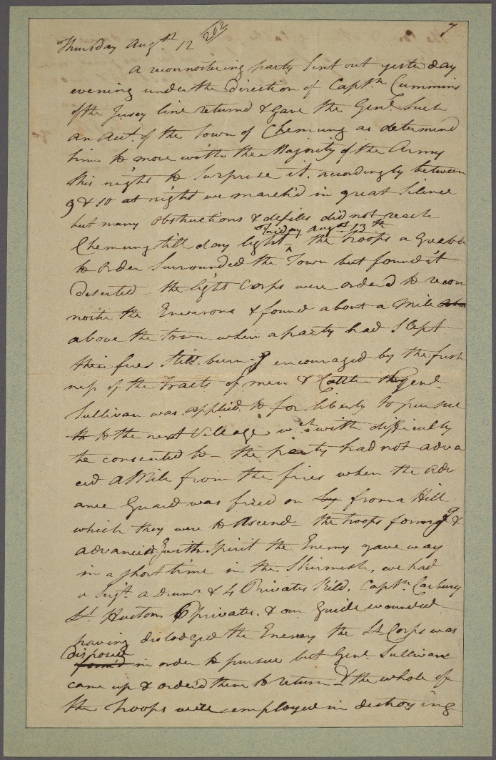 7
Thursday Augst 12 202
A reconnoitering party Sent out yesterday
evening under the Direction of Captn Cummins
of the Jersey line returned & gave the Genl Such
an Acct. of the Town of Chemung as determind
him to move with the Majority of the Army
this night to Surprise it. accordingly between
9 & 10 at night we march'd in great Silence
but many obstructions & defiles did not reach
Friday augst 13th
Chemung till day light ^ the troops agreable
to Order Surrounded the Town but found it
deserted the light Corps were orderd to recon
noite the Environs & found about a Mile
above the town where a party had Slept
their fires Still burn-g encouraged by the fresh
ness of the tracts of men & Cattle the Genl
Sullivan was applied to for liberty to pursue
to the next Village wch with difficulty
he consented to – the party had not adva
ced a Mile from the fires when the Adv
ance Guard was fired on by from a Hill
which they were to Ascend the troops formg &
advanced with Spirit the Enemy gave way
in a short time in the Skirmish, we had
a Sergt. a drumr & 4 Privates Kild, Captn. Carbury
Lt Huston 6 privates & our Guide wounded
having dislodged the Enemy the Lt Corps was
disposed
form'd in order to pursue but Genl Sullivan
came up & orderd them to return & the whole of
the troops were employed in destroying